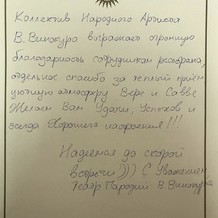 Коллектив Народного Артиста
В. Винокура выражает огромную
благодарность сотрудникам ресторана,
отдельное спасибо за теплый приём
уютную атмосферу Вере и Савве
Желаем Вам Удачи, Успехов и
всегда Хорошего настроения!!!
Надеемся до скорой
встречи))) С Уважением
Театр Пародий В. Винокура